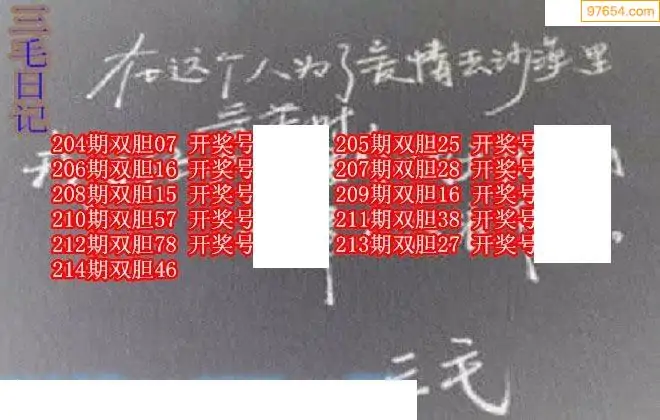 97654.com
三毛日记
在这个人为了爱情去沙漠里
204期双胆07 开奖号
205期双胆25 开奖号
206期双胆16 开奖号
207期双胆28 开奖号
208期双胆15 开奖号
209期双胆16 开奖号
210期双胆57 开奖号
211期双胆38 开奖号
212期双胆78 开奖号
213期双胆27 开奖号
214期双胆46
三毛